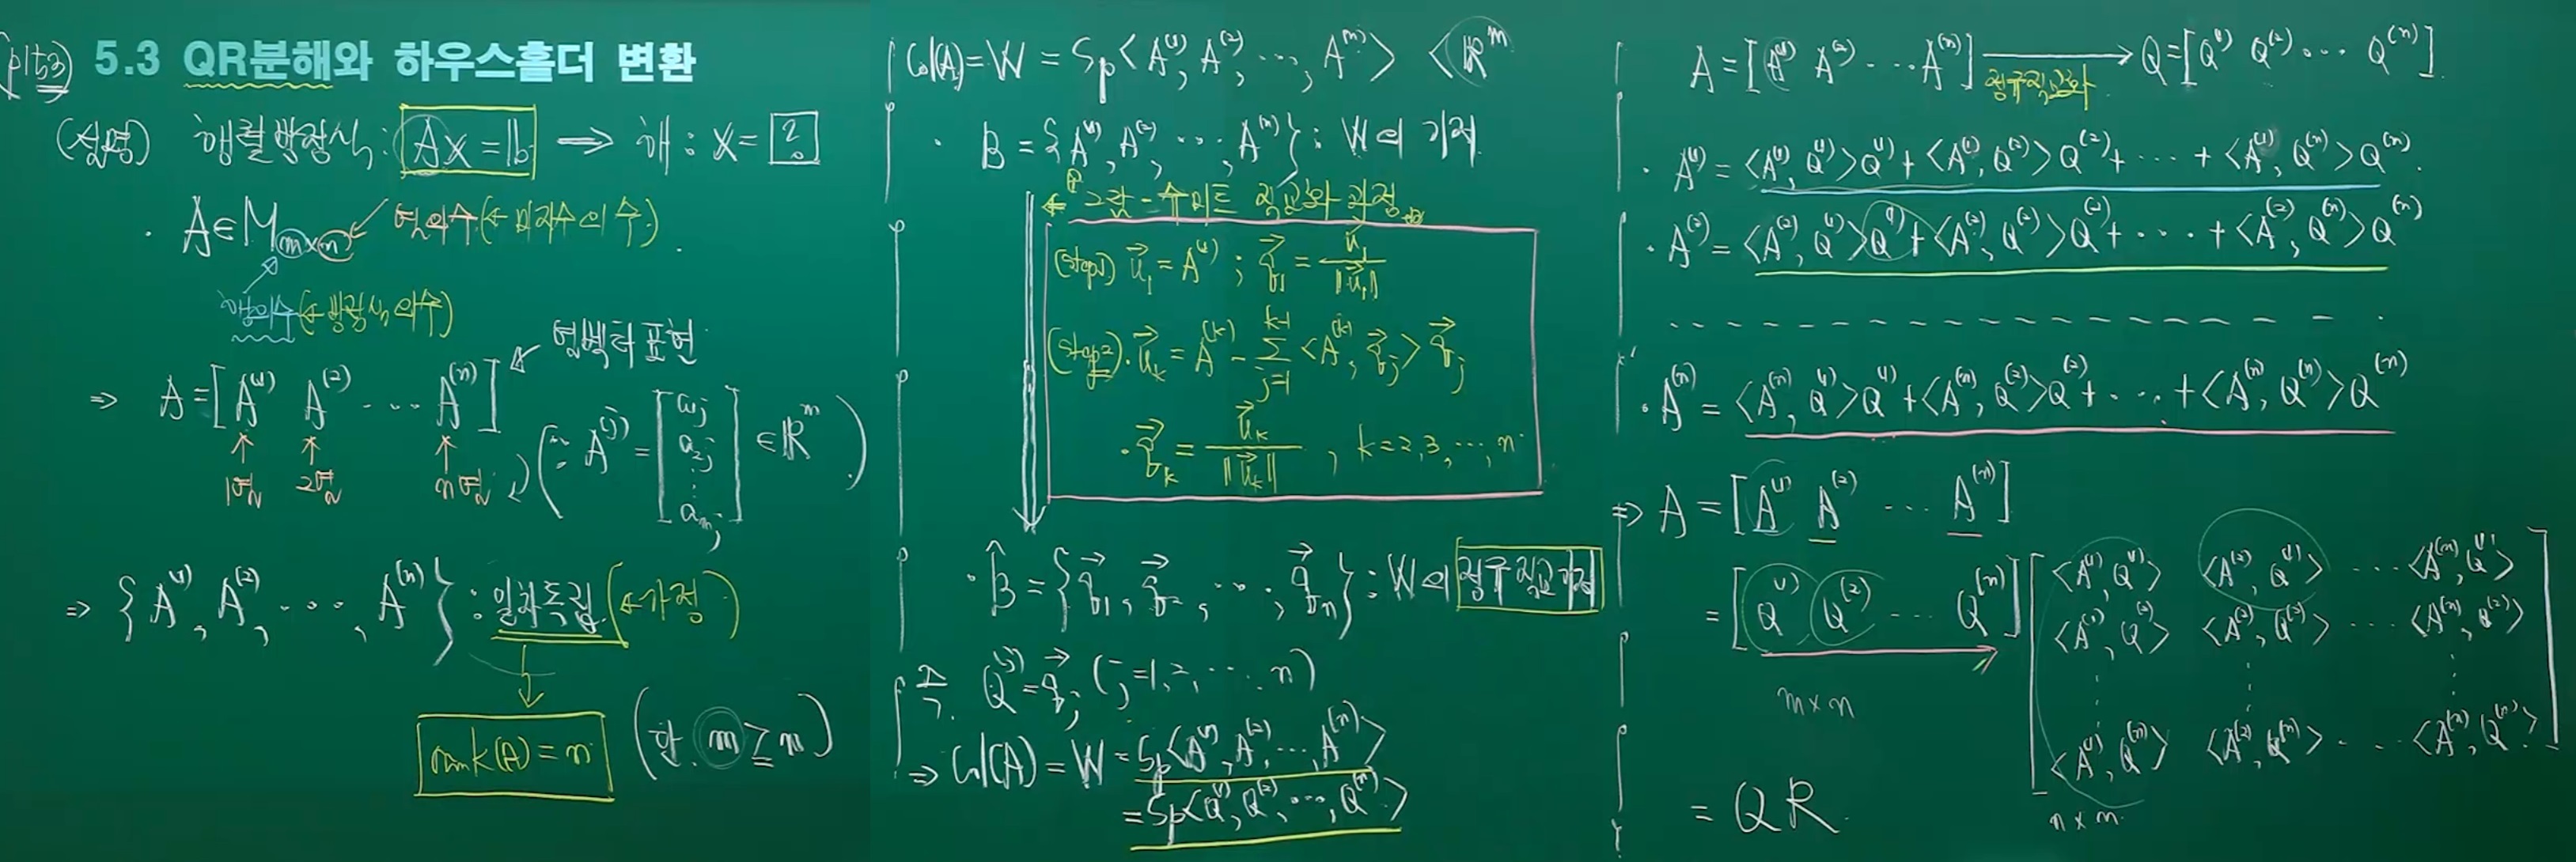 (p153) 5.3 QR분해와 하우스홀더 변환
(설명) 행렬방정식: Ax = b ⟹ 해: x = ?
· A ∈ M_{m×n} ↙ 열의수 (← 미지수의 수).
행의수 (← 방정식의 수)
⇒ A = [A^{(1)} A^{(2)} ⋯ A^{(n)}] ↙ 열벡터 표현
↑ 1열 ↑ 2열 ↑ n열
(∵ A^{(j)} = [a_{1j} a_{2j} ⋮ a_{mj}] ∈ ℝ^m)
⇒ {A^{(1)}, A^{(2)}, ⋯, A^{(n)}} : 일차독립 (← 가정)
rank(A) = n (단. m ≥ n)
Col(A) = W = Sp<A^{(1)}, A^{(2)}, ⋯, A^{(n)}> < ℝ^m
· B = {A^{(1)}, A^{(2)}, ⋯, A^{(n)}} : W의 기저
← 그람-슈미트 직교화 과정
(step1) u⃗_1 = A^{(1)} ; q⃗_1 = u⃗_1 / ‖u⃗_1‖
(step2). u⃗_k = A^{(k)} − Σ_{j=1}^{k-1} <A^{(k)}, q⃗_j> q⃗_j
· q⃗_k = u⃗_k / ‖u⃗_k‖ , k = 2, 3, ⋯, n
· B̂ = {q⃗_1, q⃗_2, ⋯, q⃗_n} : W의 정규직교기저
Q^{(j)} = q⃗_j (j = 1, 2, ⋯, n)
⇒ Col(A) = W = Sp<A^{(1)}, A^{(2)}, ⋯, A^{(n)}>
= Sp<Q^{(1)}, Q^{(2)}, ⋯, Q^{(n)}>
A = [A^{(1)} A^{(2)} ⋯ A^{(n)}] ⟶ 정규직교화 Q = [Q^{(1)} Q^{(2)} ⋯ Q^{(n)}].
· A^{(1)} = <A^{(1)}, Q^{(1)}>Q^{(1)} + <A^{(1)}, Q^{(2)}>Q^{(2)} + ⋯ + <A^{(1)}, Q^{(n)}>Q^{(n)}.
· A^{(2)} = <A^{(2)}, Q^{(1)}>Q^{(1)} + <A^{(2)}, Q^{(2)}>Q^{(2)} + ⋯ + <A^{(2)}, Q^{(n)}>Q^{(n)}
· A^{(n)} = <A^{(n)}, Q^{(1)}>Q^{(1)} + <A^{(n)}, Q^{(2)}>Q^{(2)} + ⋯ + <A^{(n)}, Q^{(n)}>Q^{(n)}
⇒ A = [A^{(1)} A^{(2)} ⋯ A^{(n)}]
= [Q^{(1)} Q^{(2)} ⋯ Q^{(n)}] [<A^{(1)}, Q^{(1)}> <A^{(2)}, Q^{(1)}> ⋯ <A^{(n)}, Q^{(1)}>
<A^{(1)}, Q^{(2)}> <A^{(2)}, Q^{(2)}> ⋯ <A^{(n)}, Q^{(2)}>
⋮ ⋮ ⋮
<A^{(1)}, Q^{(n)}> <A^{(2)}, Q^{(n)}> ⋯ <A^{(n)}, Q^{(n)}>]
m×n
n×m
= QR.